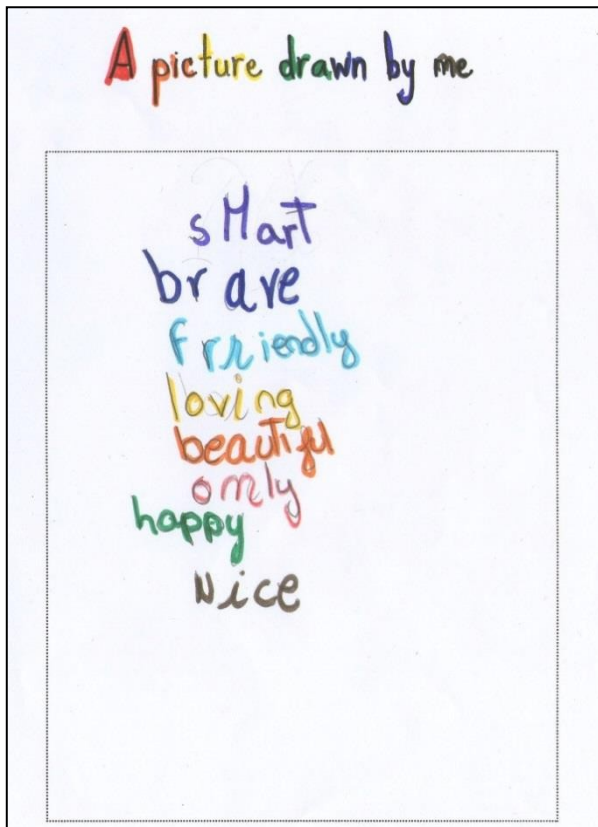 A picture drawn by me
sMart
brave
frriendly
loving
beautiful
only
happy
Nice